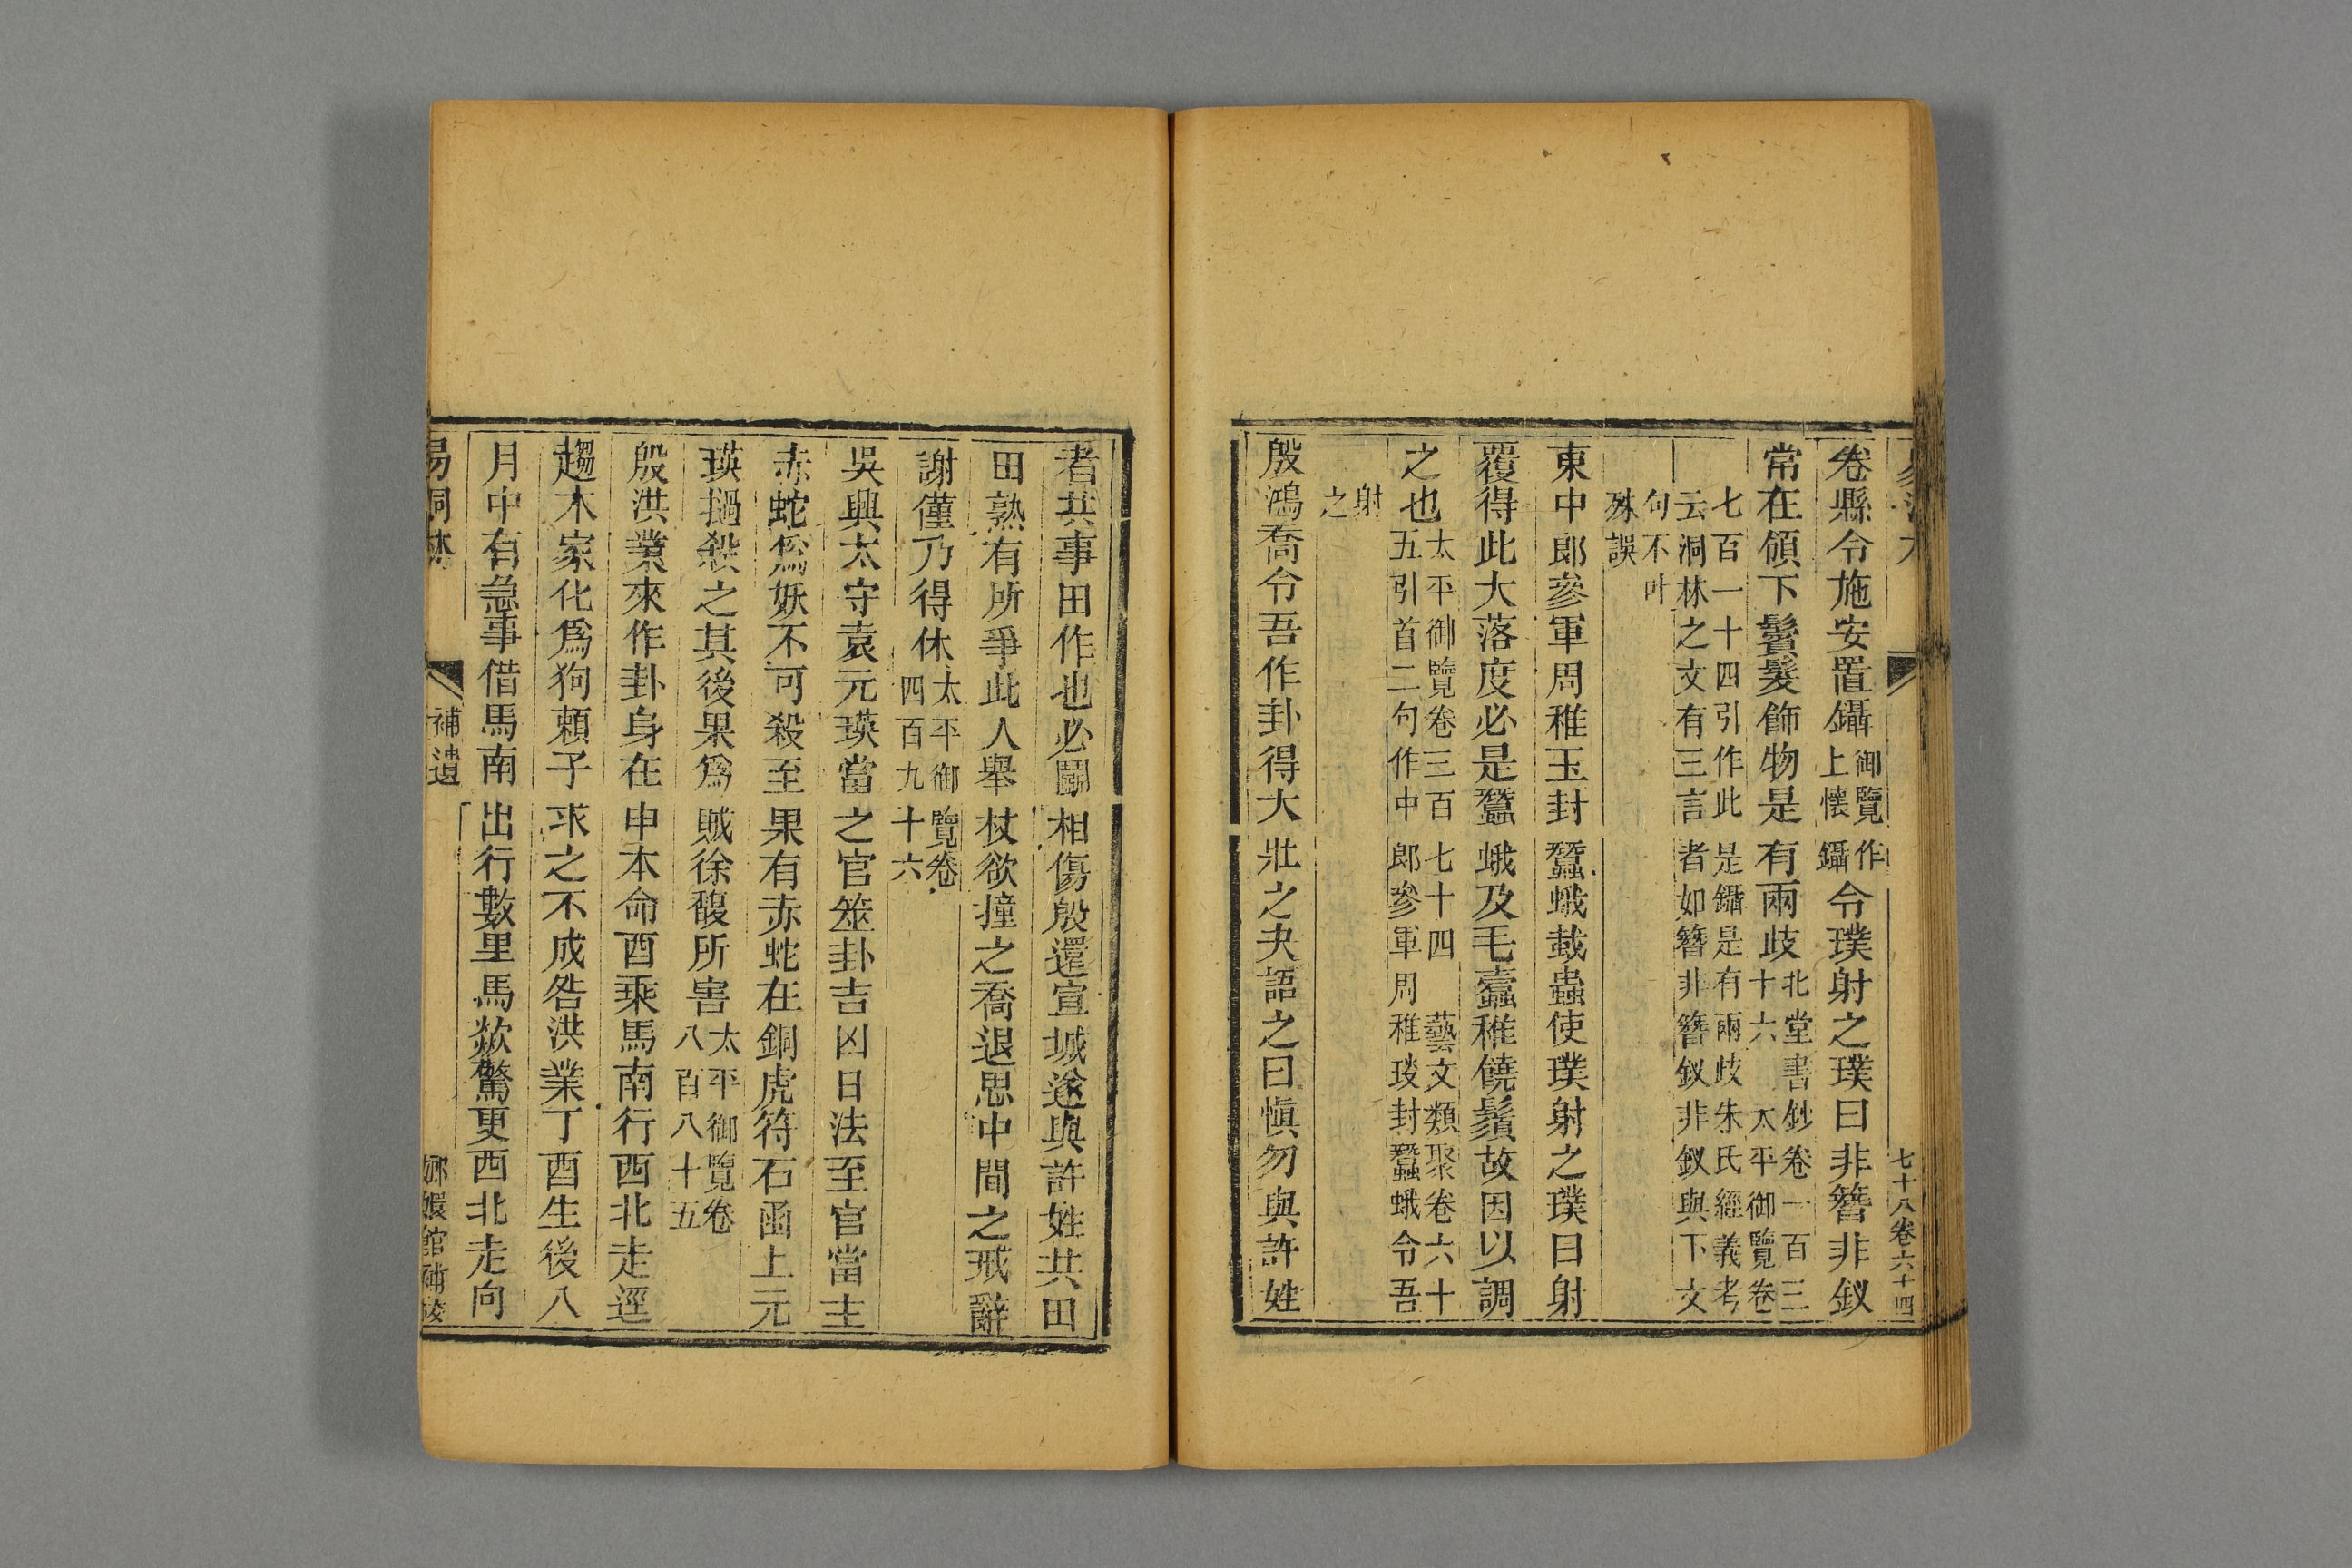 七十八卷六十四
卷縣令施安置鑷御覽作上懷鑷令璞射之璞曰非簪非釵
常在頎下鬢髮飾物是有兩歧北堂書鈔卷一百三十六 太平御覽卷
七百一十四引作此是鑷是有兩歧朱氏經義考云洞林之文有三言者如簪非簪釵非釵與下文
句不叶殊誤
東中郎參軍周稚玉封蠶蛾蛓蟲使璞射之璞曰射
覆得此大落度必是蠶蛾及毛蠧稚饒鬚故因以調
之也太平御覽卷三百七十四 藝文類聚卷六十五引首二句作中郎參軍周稚琰封蠶蛾令吾
射之
殷鴻喬令吾作卦得大壯之夬語之曰愼勿與許姓
者共事田作也必鬭相傷殷還宣城遂與許姓共田
田熟有所爭此人舉杖欲撞之喬退思中間之戒辭
謝僅乃得休太平御覽卷四百九十六
吳興太守袁元瑛當之官筮卦吉凶日法至官當主
赤蛇爲妖不可殺至果有赤蛇在銅虎符石函上元
瑛撾殺之其後果爲賊徐馥所害太平御覽卷八百八十五
殷洪業來作卦身在申本命酉乘馬南行西北走逕
趨木家化爲狗頼子求之不成咎洪業丁酉生後八
月中有急事借馬南出行數里馬欻驚更西北走向
易洞林 補遺 嫏嬛館補校